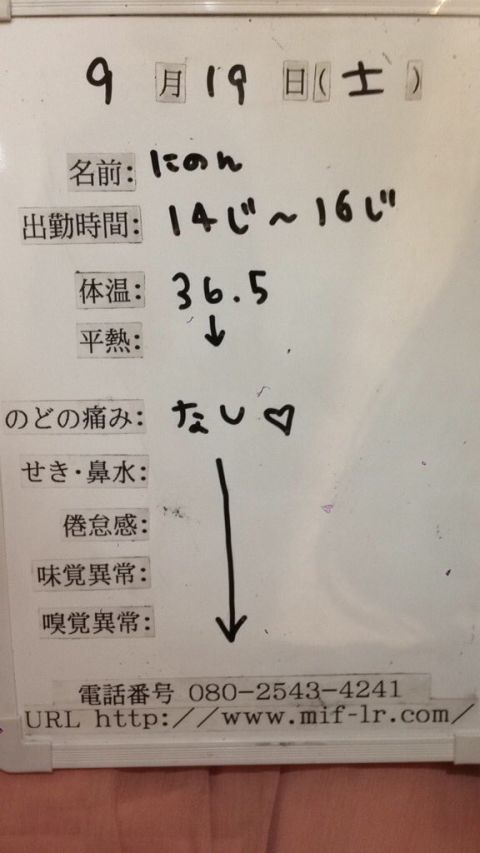 9月19日(土)
名前: にのん
出勤時間: 14じ～16じ
体温: 36.5
平熱: ↓
のどの痛み: なし♡
せき・鼻水:
倦怠感:
味覚異常:
嗅覚異常:
電話番号 080-2543-4241
URL http://www.mif-lr.com/